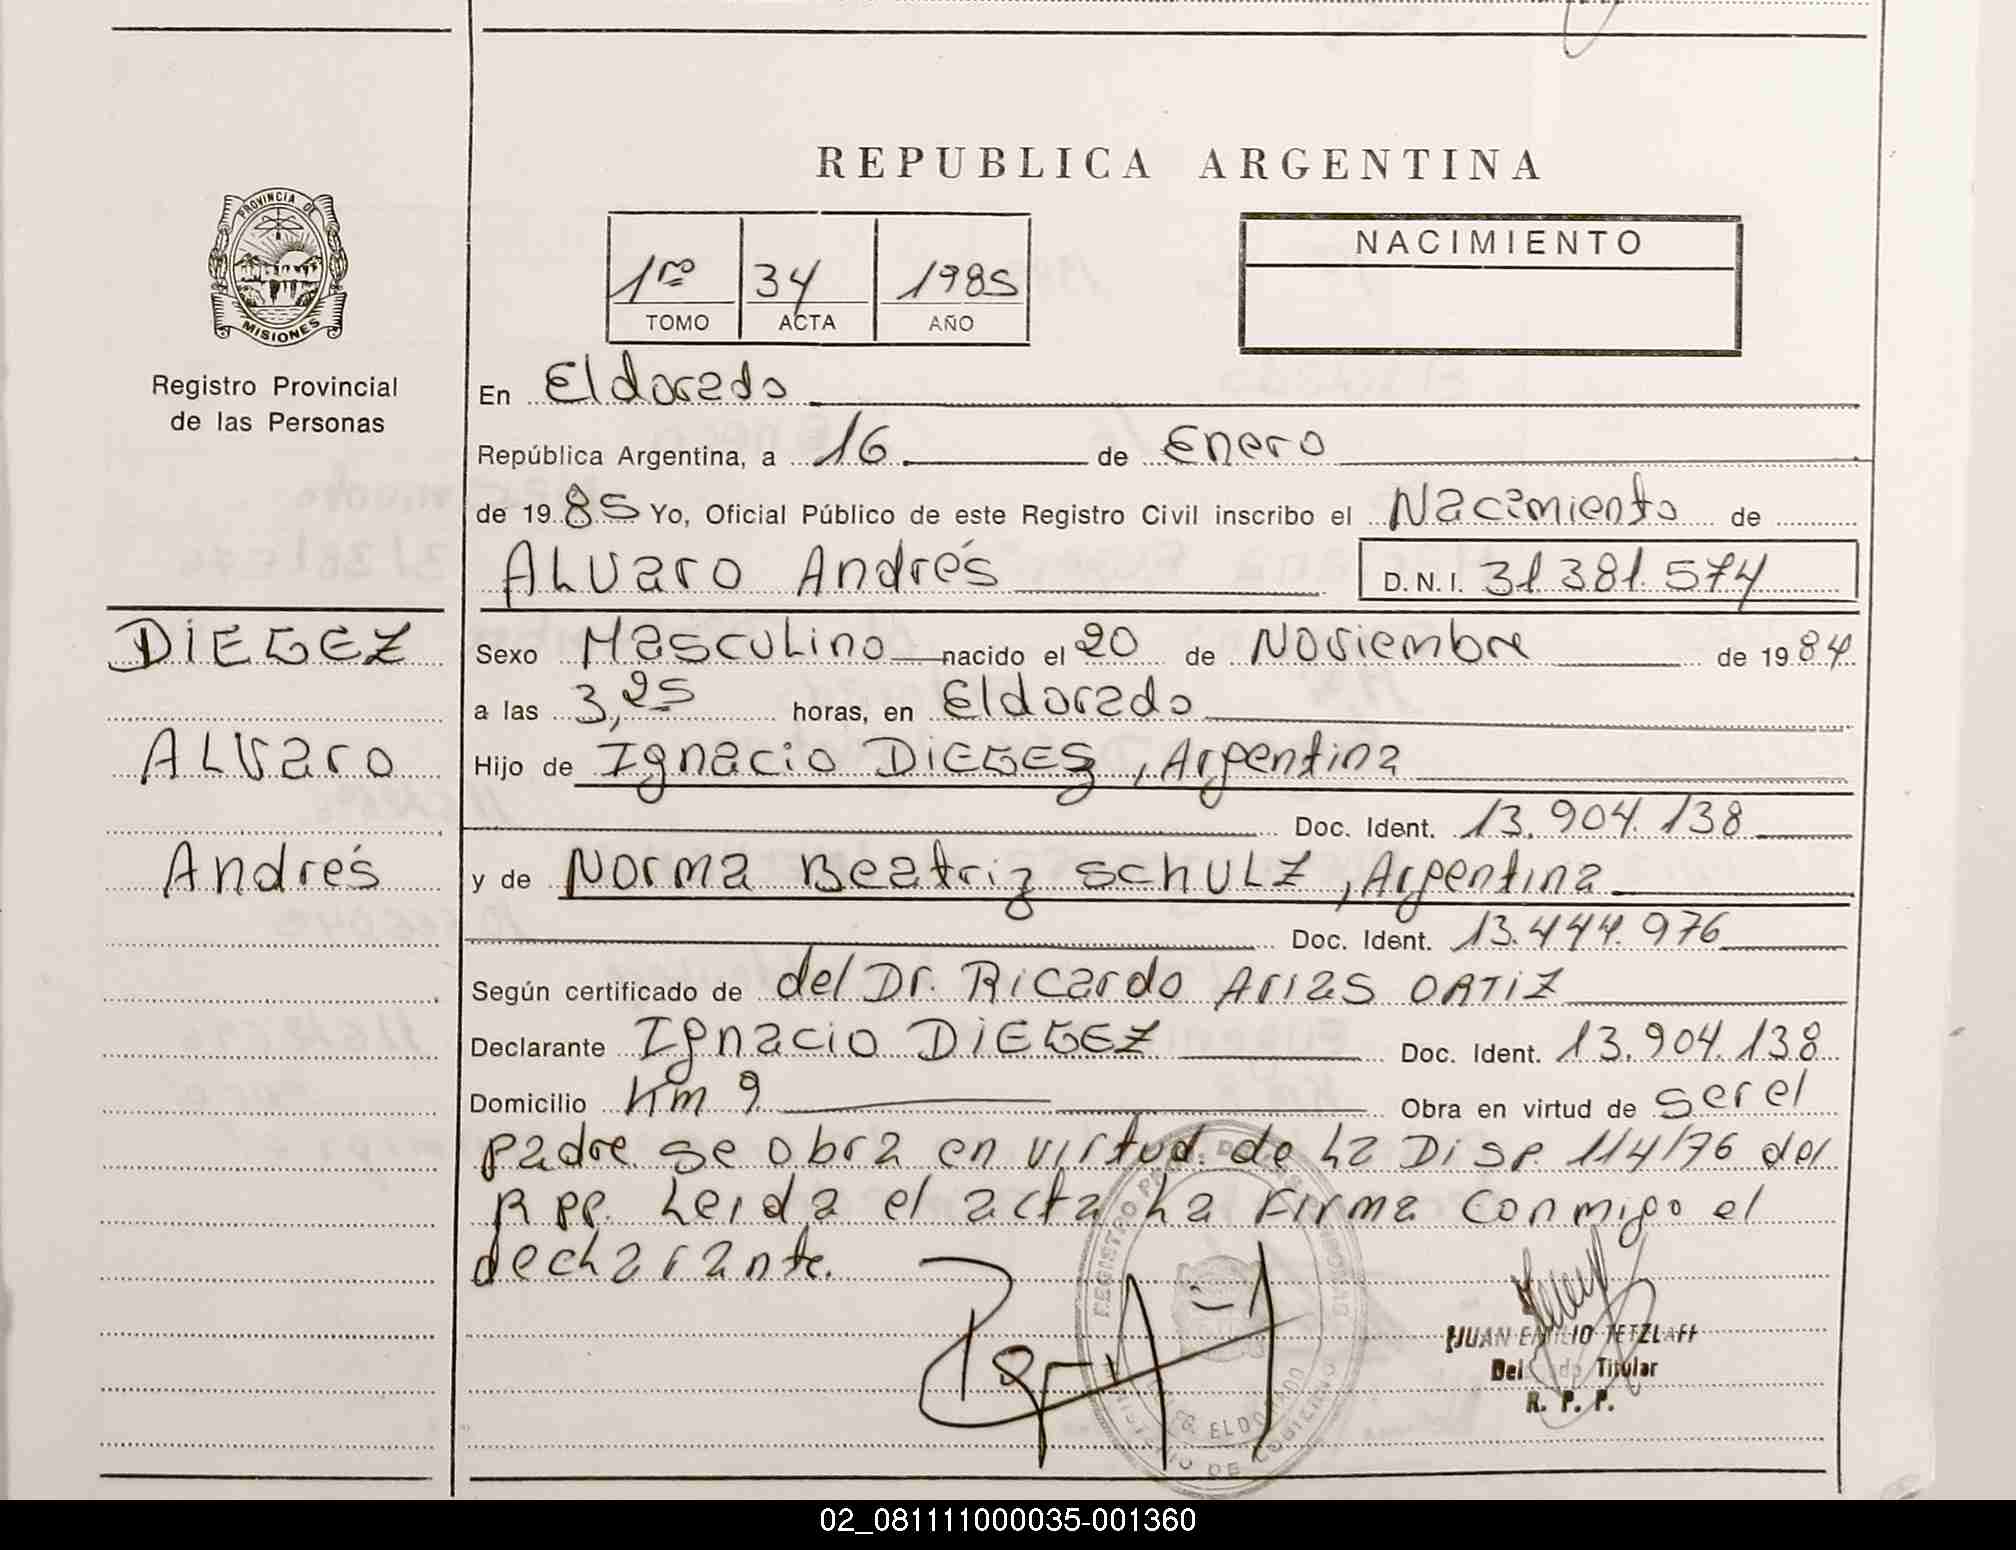 REPUBLICA ARGENTINA
PROVINCIA DE
MISIONES
Registro Provincial
de las Personas
1ro 34 1985
TOMO ACTA AÑO
NACIMIENTO
En Eldorado
República Argentina, a 16 de Enero
de 1985 Yo, Oficial Público de este Registro Civil inscribo el Nacimiento de
ALVaro Andrés D.N.I. 31.381.574
DIEGEZ
ALVaro
Andrés
Sexo MascuLino nacido el 20 de Noviembre de 1984
a las 3,25 horas, en Eldorado
Hijo de Ignacio DIEGES, Argentina
Doc. Ident. 13.904.138
y de Norma Beatriz SCHULZ, Argentina
Doc. Ident. 13.444.976
Según certificado de del Dr. Ricardo Arias ORTIZ
Declarante Ignacio DIEGEZ Doc. Ident. 13.904.138
Domicilio Km 9 Obra en virtud de ser el
padre. se obra en virtud. de La Disp. 114/76 del
R pp. Leida el acta La Firma conmigo el
decLarante.
JUAN EMILIO TETZLAFF
Titular
R. P. P.
ELDORADO
02_081111000035-001360